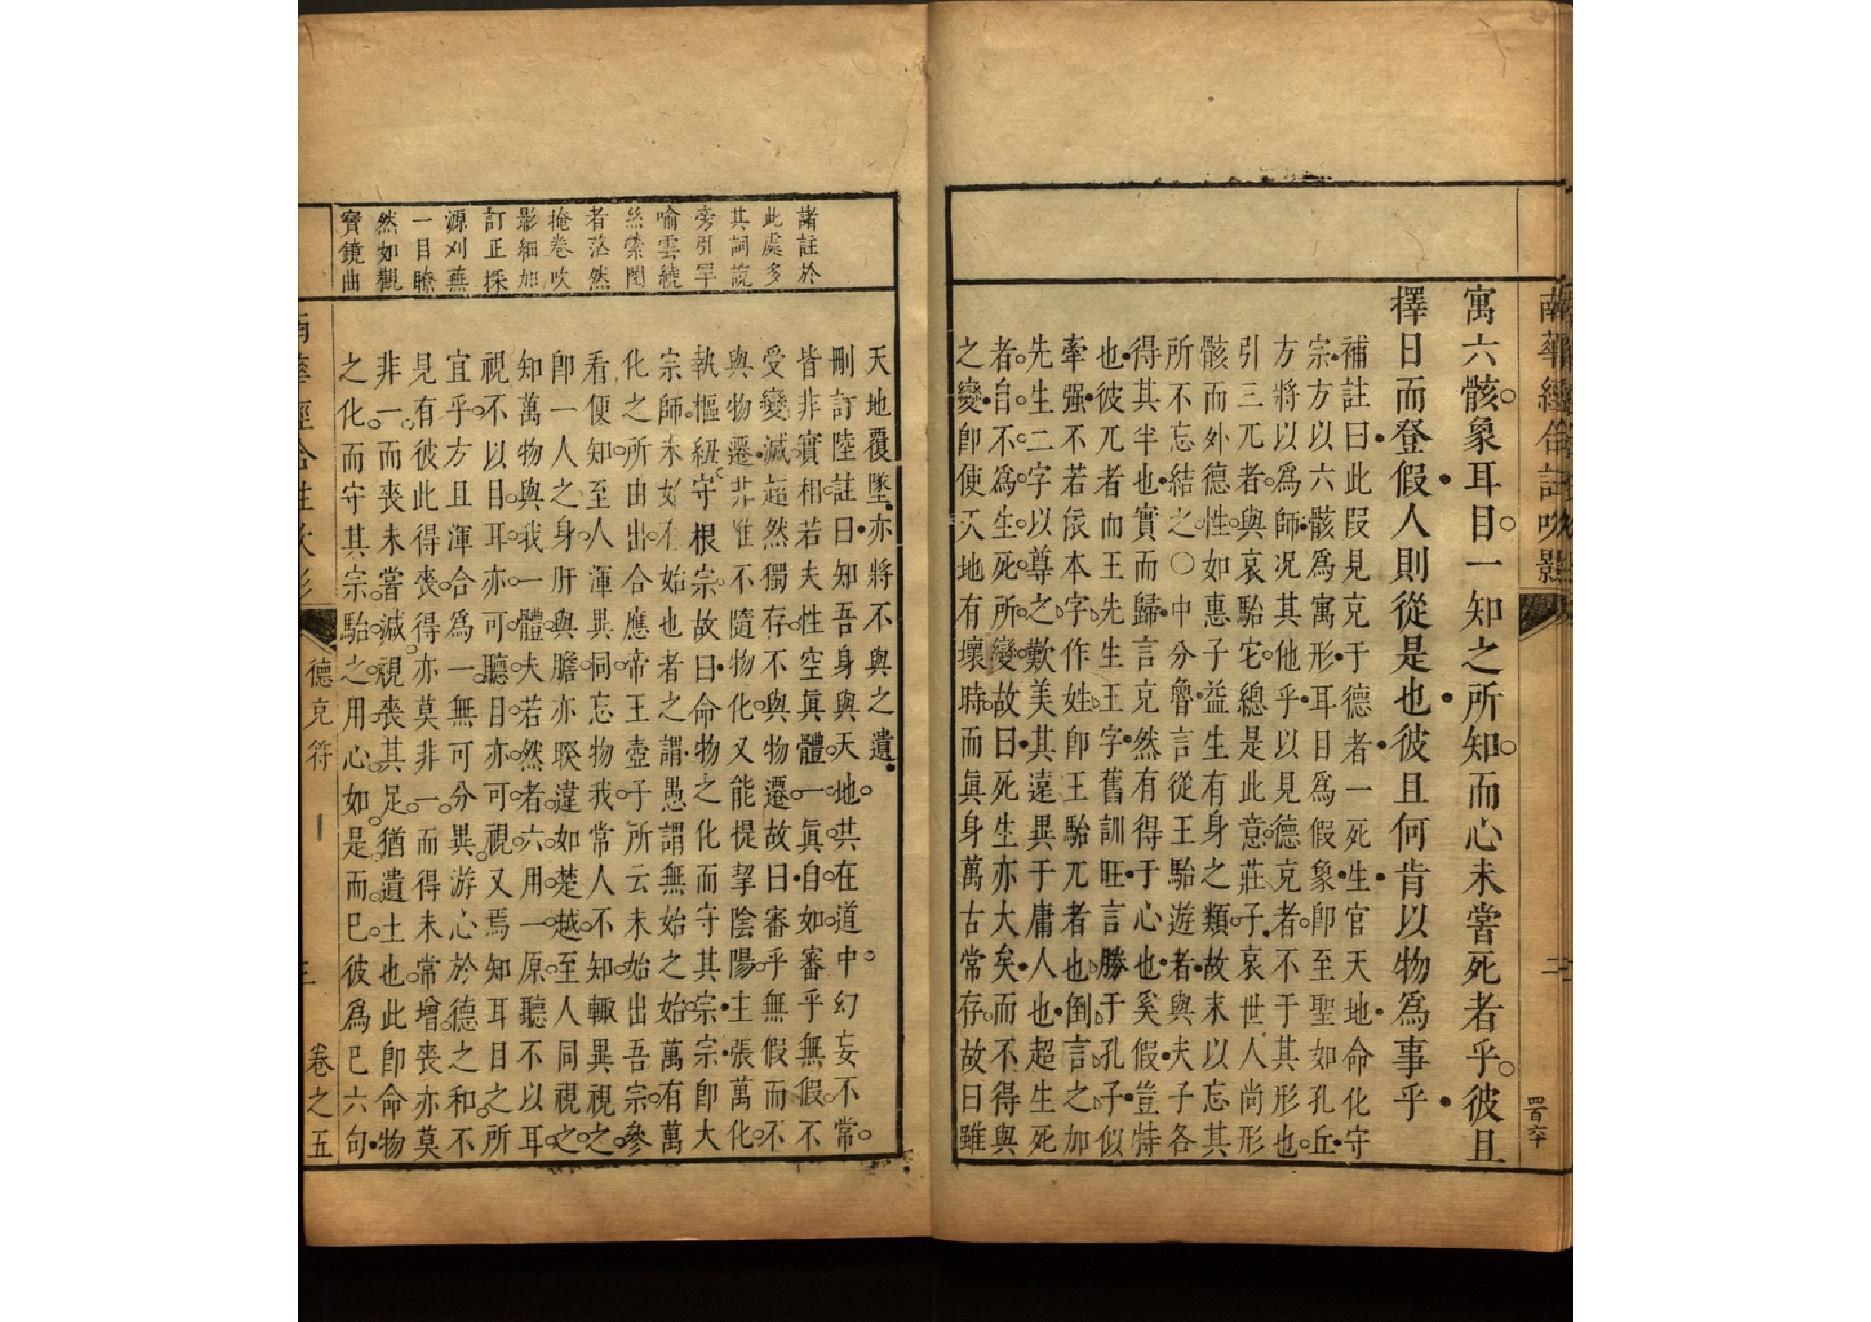 南華經合註吹影
二
寓六骸象耳目一知之所知而心未嘗死者乎彼且
擇日而登假人則從是也彼且何肯以物爲事乎
補註曰此段見克于德者一死生官天地命化守
宗方以六骸爲寓形耳目爲假象卽至聖如孔丘
方將以爲師况其他乎以見德克者不于其形也
引三兀者與哀駘它總是此意莊子哀世人尚形
骸而外德性如惠子益生有身之類故末以忘其
所不忘結之〇中分魯言從王駘遊者與夫子各
得其半也實而歸言克然有得于心也奚假豈特
也彼兀者而王先生王字舊訓旺言勝于孔子似
牽强不若依本字作姓卽王駘兀者也倒言之加
先生二字以尊之歎美其遠異于庸人也超生死
者自不爲生死所變故曰死生亦大矣而不得與
之變卽使天地有壞時而眞身萬古常存故曰雖
諸註於
此處多
其詞說
旁引罕
喻雲繞
絲縈閱
者茫然
掩卷吹
影細加
訂正採
源刈蕪
一目瞭
然如觀
寶鏡曲
天地覆墜亦將不與之遺
刪訂陸註曰知吾身與天地共在道中幻妄不常
皆非實相若夫性空眞體一眞自如審乎無假不
受變滅超然獨存不與物遷故曰審乎無假而不
與物遷非惟不隨物化又能提挈陰陽主張萬化
執樞紐守根宗故曰命物之化而守其宗宗卽大
宗師未始也者之謂愚謂無始之始萬有萬
化之所由出合應帝王壺子所云未始出吾宗參
看便知至人渾異同忘物我常人不知輙異視之
卽一人之身肝與膽亦暌違如楚越至人同視之
知萬物與我一體夫若然者六用一原聽不以耳
視不以目耳亦可聽目亦可視又焉知耳目之所
宜乎方且渾合爲一無可分異游心於德之和不
見有彼此得喪得亦莫非一而得未常增喪亦莫
非一而喪未嘗減視喪其足猶遺土也此卽命物
之化而守其宗駘之用心如是而已彼爲已六句
德克符
卷之五